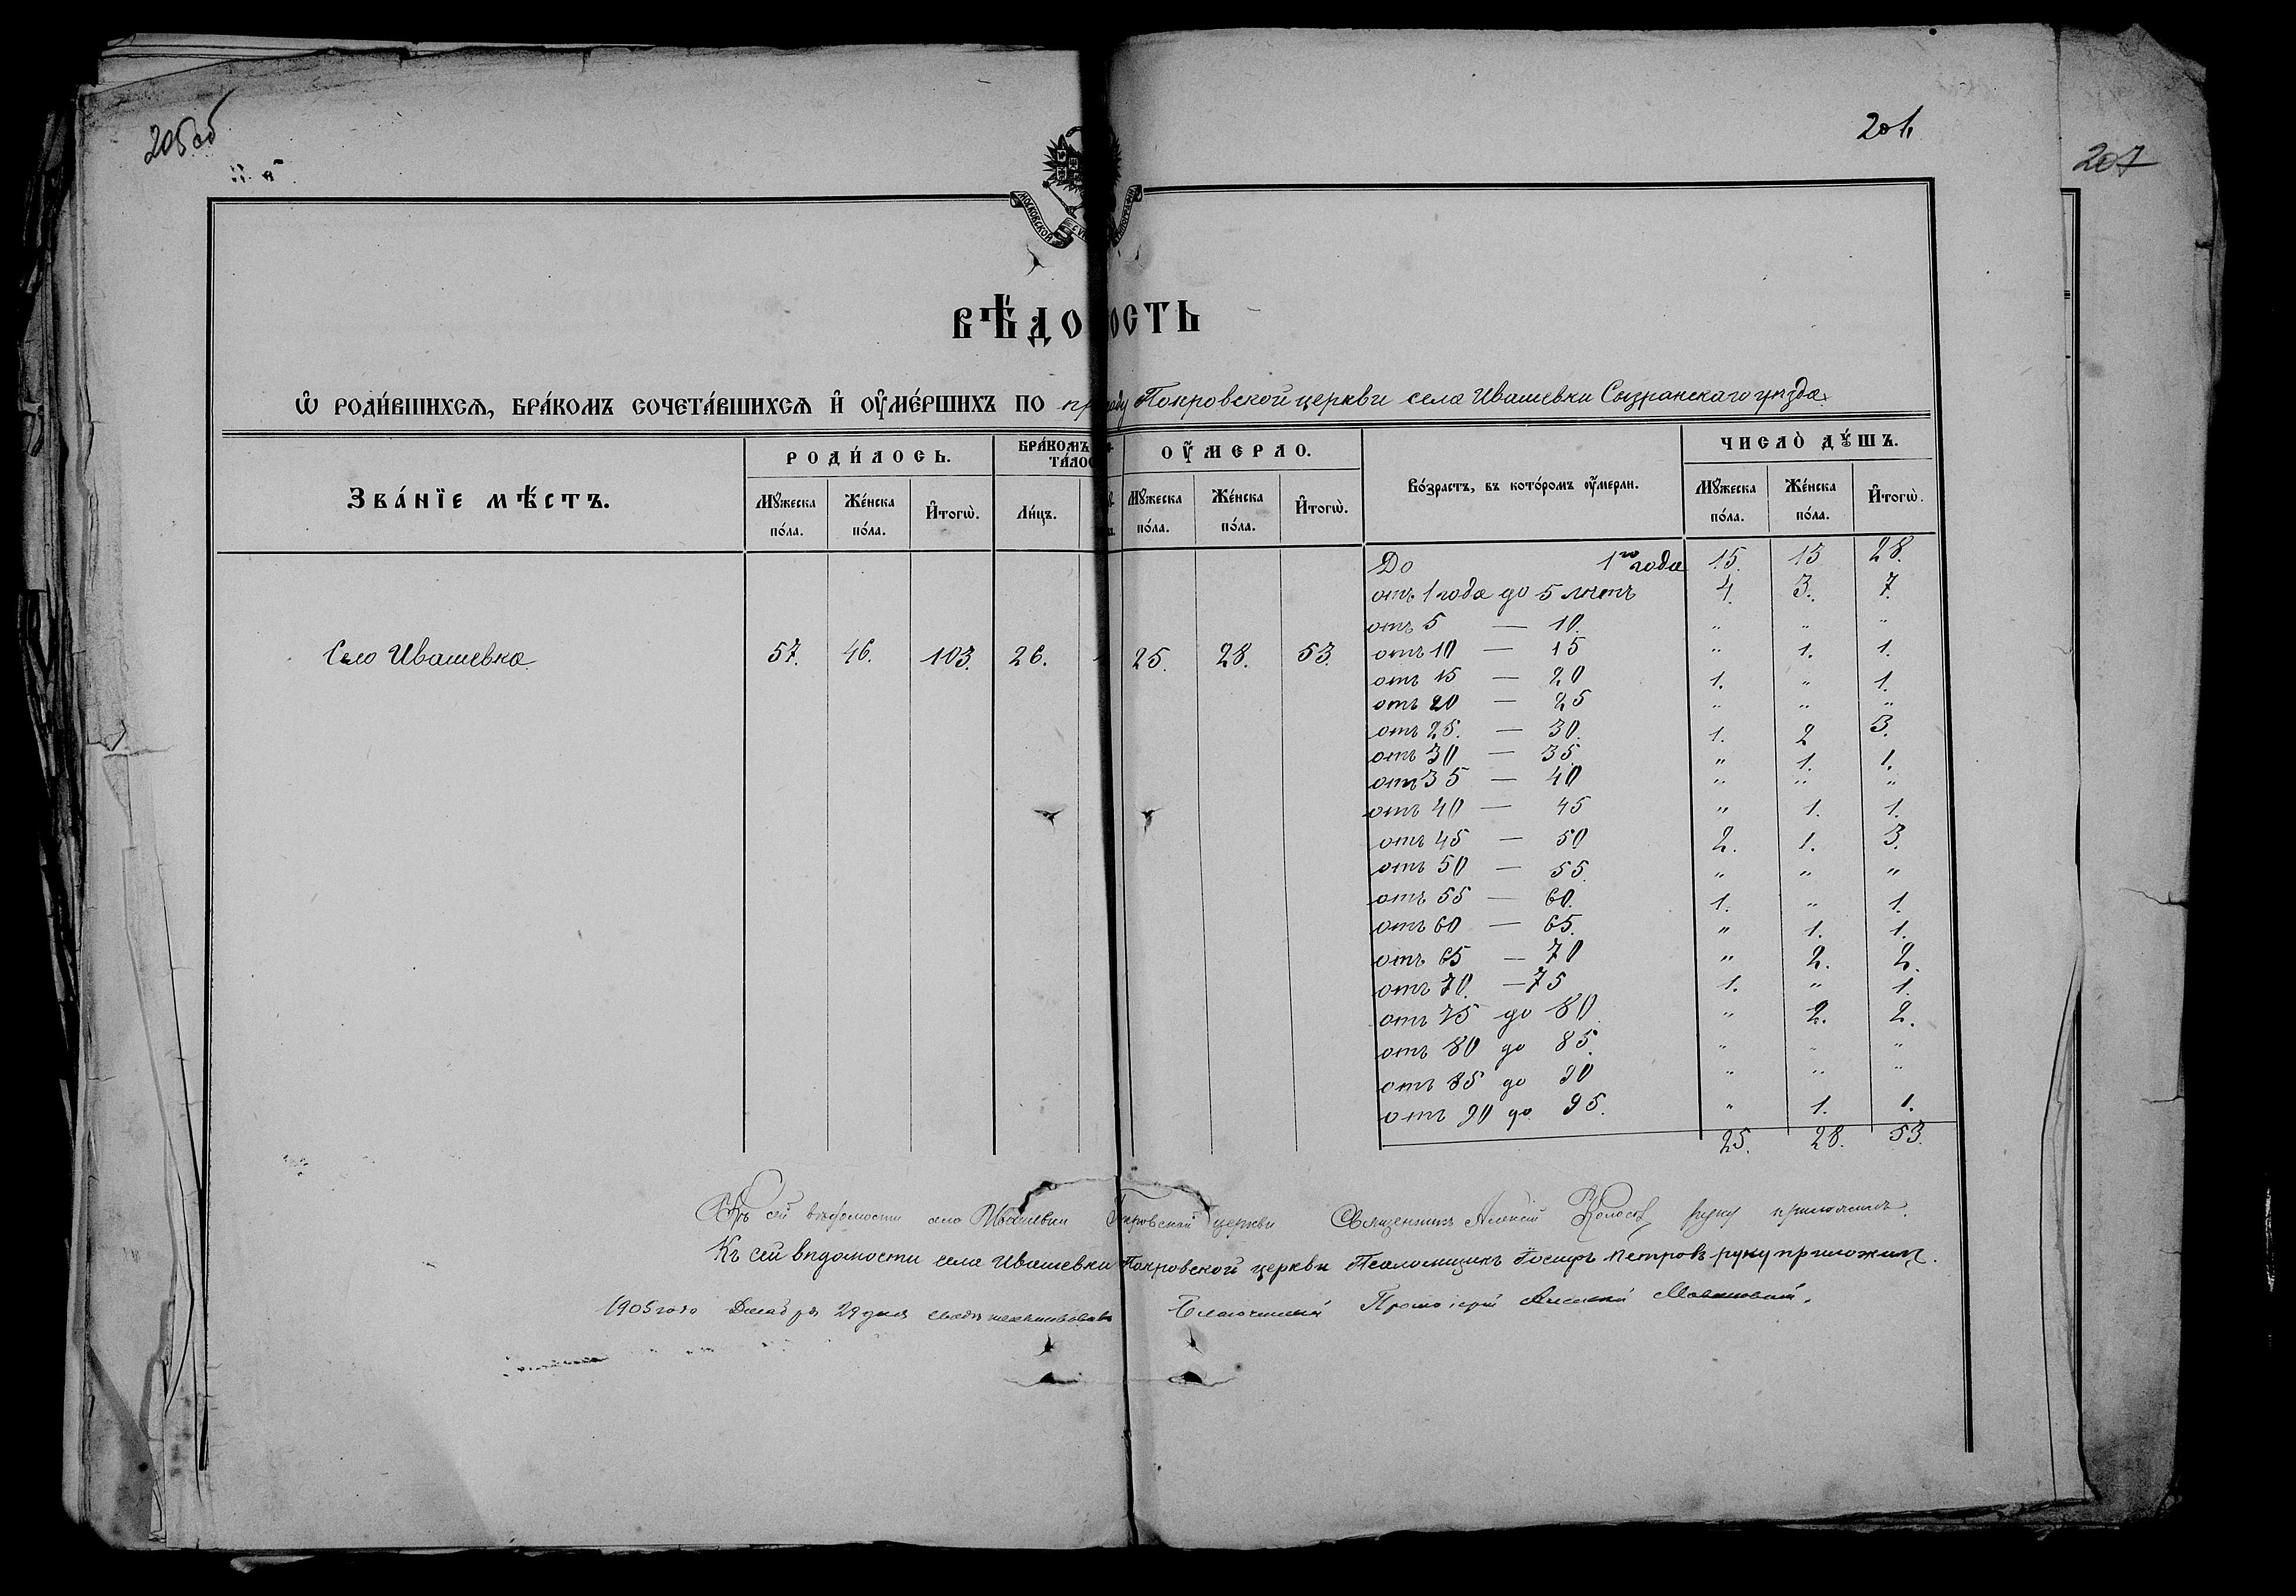 205 об
201.
207
МОСКОВСКОЙ
ВѢДО ОСТЬ
Ѡ РОДИ́ВШИХСѦ, БРА́КОМЪ СОЧЕТА́ВШИХСѦ И҆ ОУ҆МЕ́РШИХЪ ПО Покровской церкви села Ивашевки Сызранскаго уѣзда.
Зва́нїе мѣ́стъ.
Роди́лось.
Бра́комъ
та́ло
Оу҆мерло.
Во́зрастъ, въ кото́ромъ оу҆́мерли.
Число̀ дꙋ́шъ.
Мꙋ́жеска по́ла.
Же́нска по́ла.
И҆тогѡ̀.
Ли́цъ.
Мꙋ́жеска по́ла.
Же́нска по́ла.
И҆тогѡ̀.
Мꙋ́жеска по́ла.
Же́нска по́ла.
И҆тогѡ̀.
Село Ивашевка. 57. 46. 103. 26. 25. 28. 53.
До 1го года 15. 15 28.
отъ 1 года до 5 лѣтъ 4. 3. 7.
отъ 5 — 10. " " "
отъ 10 — 15 " 1. 1.
отъ 15 — 20 1. " 1.
отъ 20 — 25 " " "
отъ 25. — 30. 1. 2 3.
отъ 30 — 35. " 1. 1.
отъ 35 — 40 " " "
отъ 40 — 45 " 1. 1.
отъ 45 — 50 2. 1. 3.
отъ 50 — 55. " " "
отъ 55 — 60. 1. " 1.
отъ 60 — 65. " 1. 1.
отъ 65 — 70 " 2. 2.
отъ 70. — 75 1. " 1.
отъ 75 до 80. " 2. 2.
отъ 80 до 85. " " "
отъ 85 до 90 " " "
отъ 90 до 95. " 1. 1.
25. 28. 53.
Къ сей вѣдомости села Ивашевки Покровской церкви Священникъ Алексій Колосовъ руку приложилъ.
Къ сей вѣдомости села Ивашевки Покровской церкви Псаломщикъ Іосифъ Петровъ руку приложилъ.
1905 года Декабря 29 дня свидѣтельствовалъ Благочинный Протоіерей Алексій